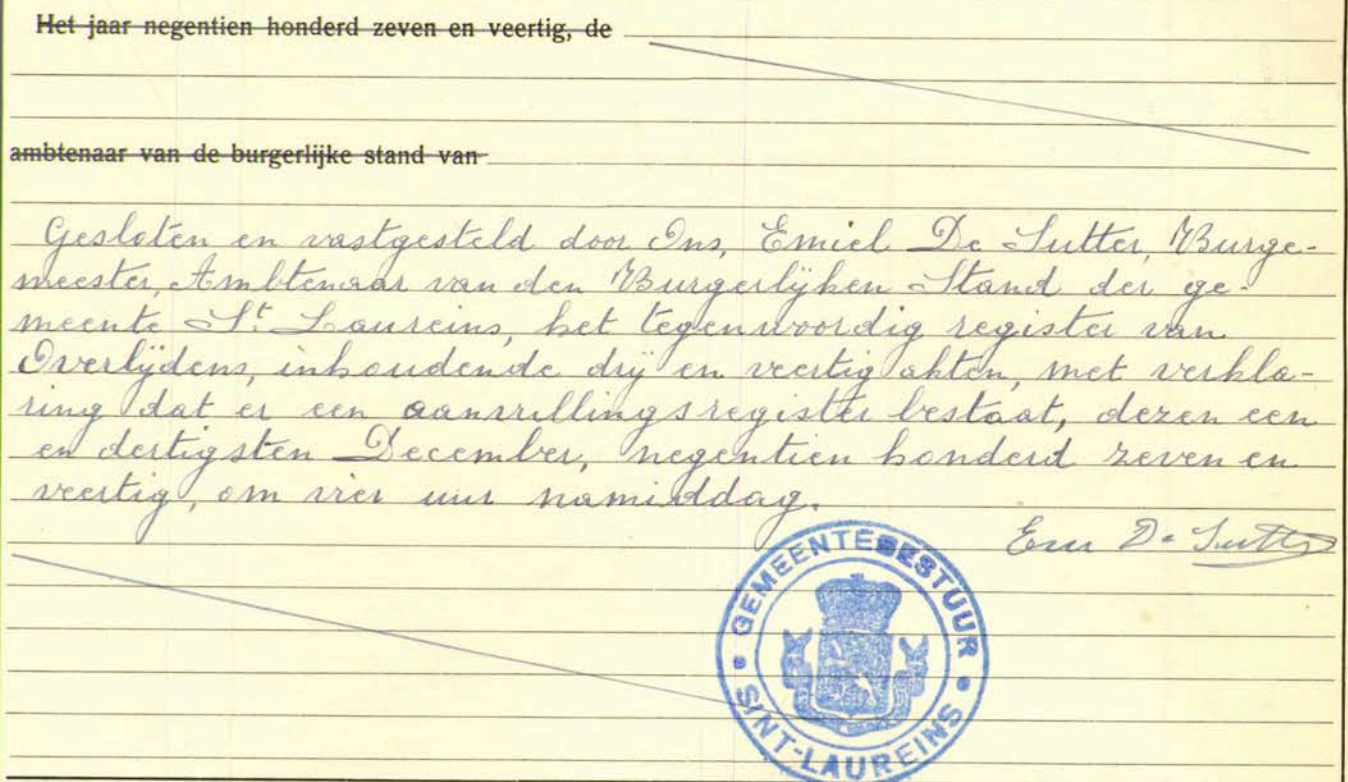 Het jaar negentien honderd zeven en veertig, de
ambtenaar van de burgerlijke stand van
Gesloten en vastgesteld door Ons, Emiel De Sutter, Burge-
meester, Ambtenaar van den Burgerlijken Stand der ge-
meente St Laureins, het tegenwoordig register van
Overlijdens, inhoudende drij en veertig akten, met verkla-
ring dat er een aanvullingsregister bestaat, dezen een
en dertigsten December, negentien honderd zeven en
veertig, om vier uur namiddag.
Em De Sutter
GEMEENTEBESTUUR
SINT-LAUREINS